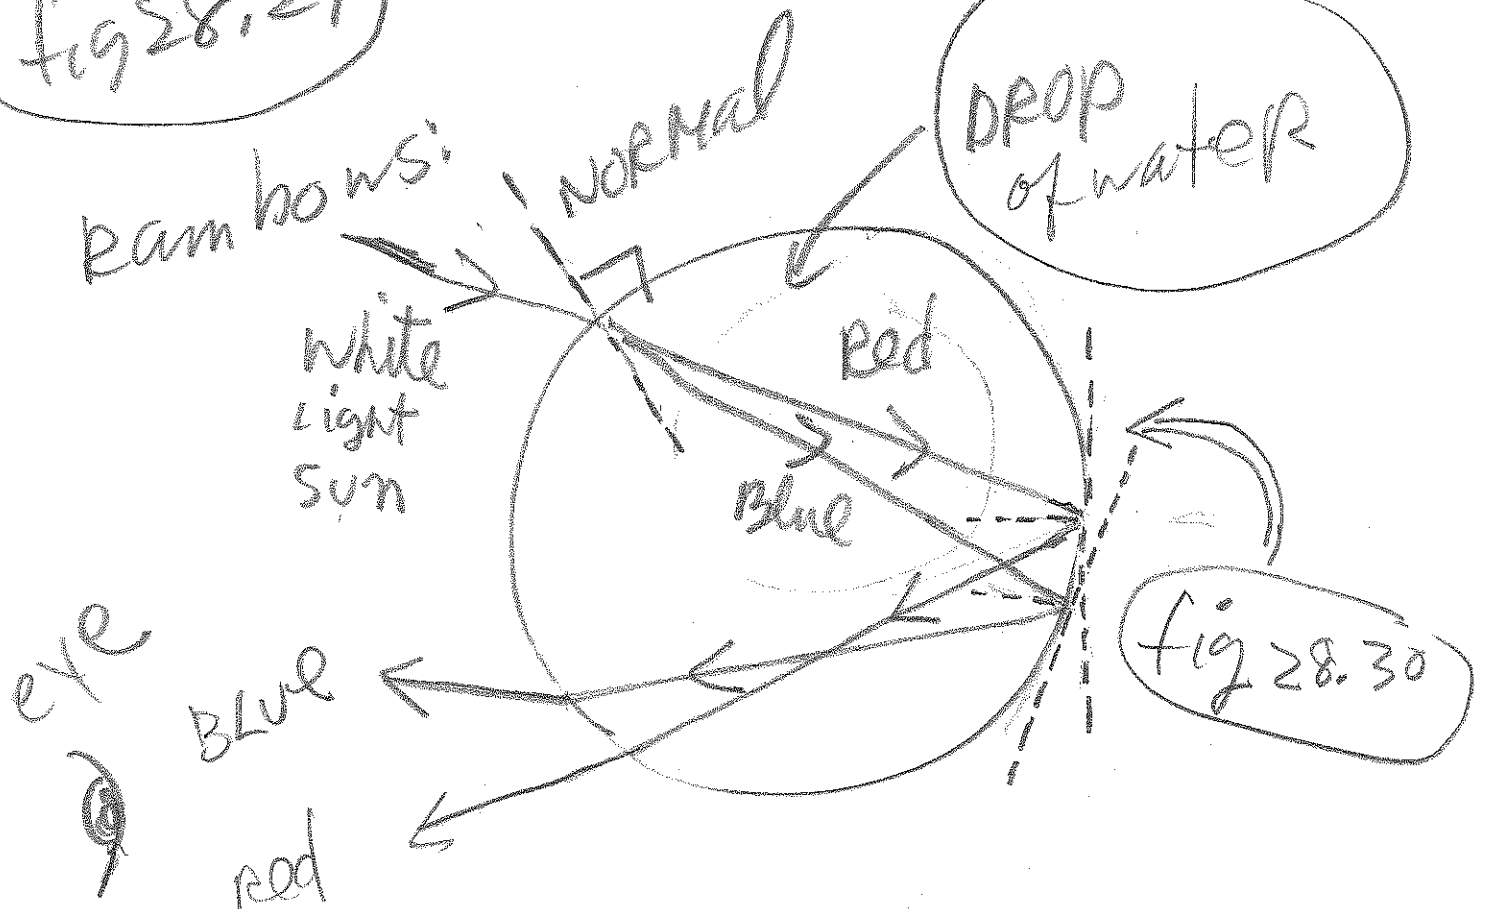 fig 28.29
Rainbows:
NORMAL
DROP
of water
White
Light
Sun
Red
Blue
fig 28.30
eye
BLUE
Red